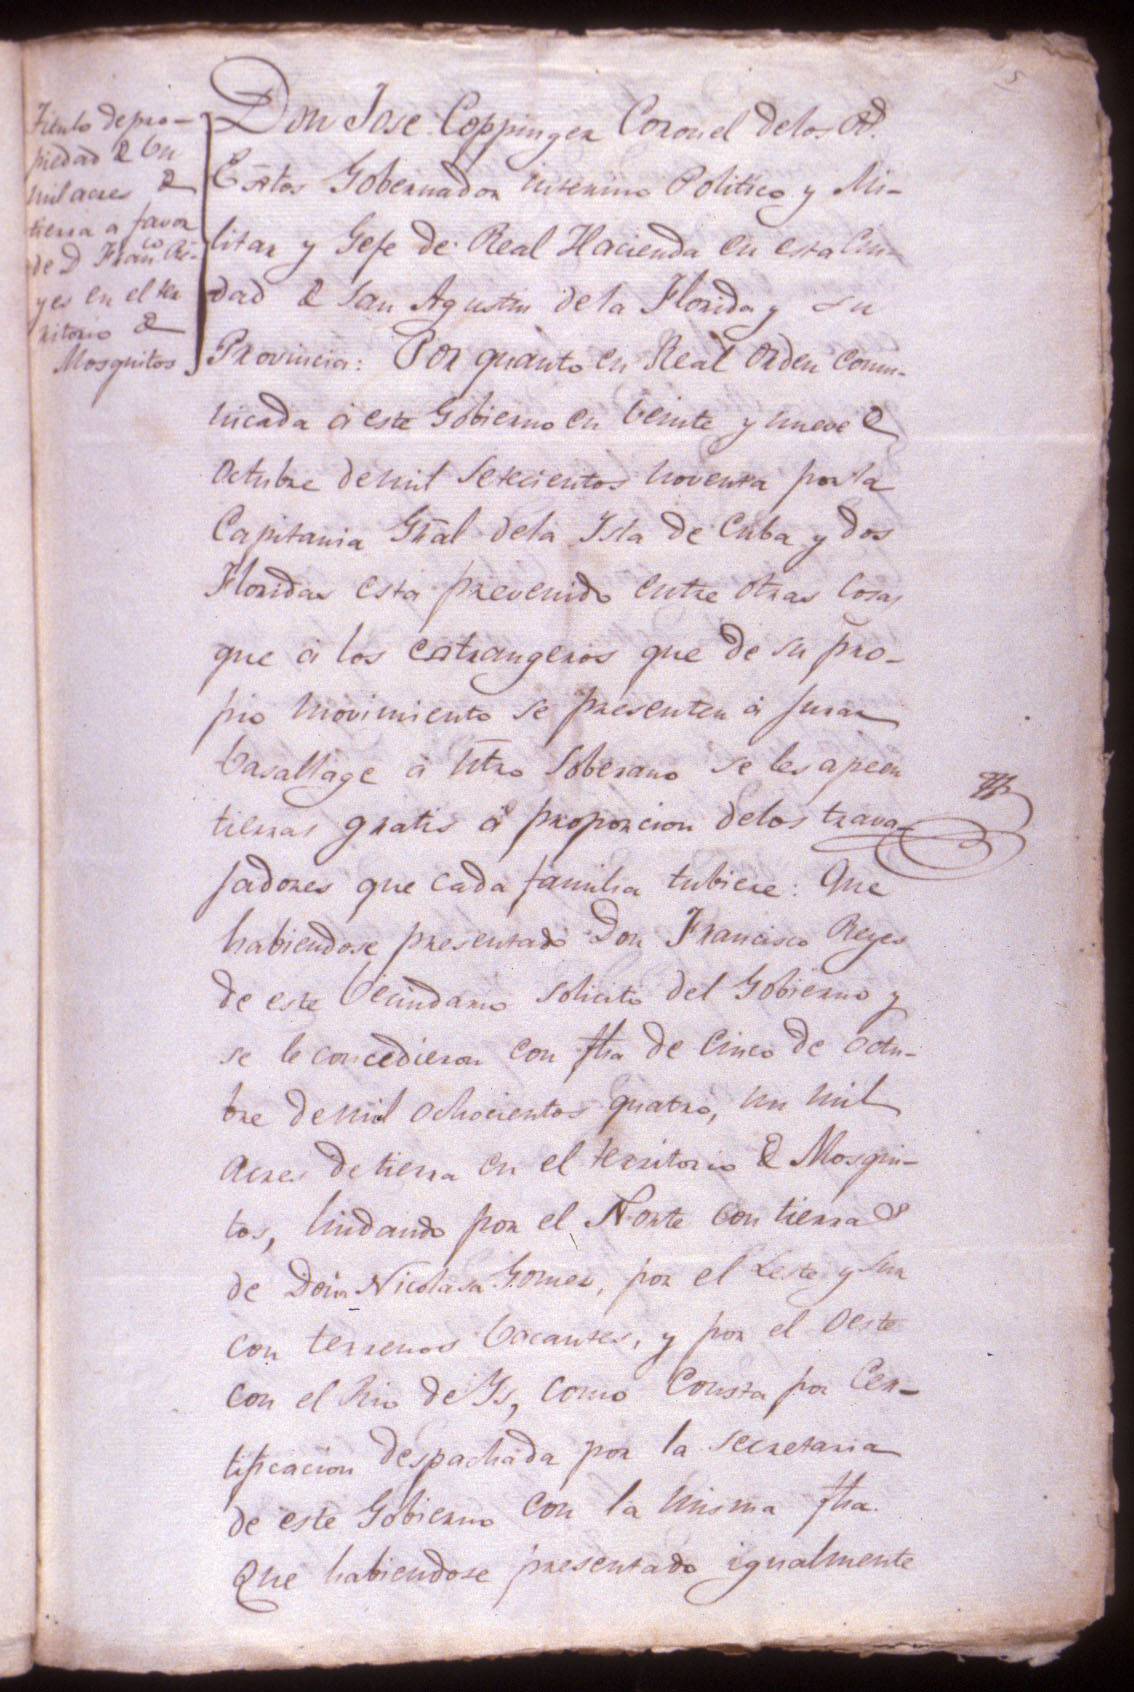 5
Titulo de pro-
piedad de Un
mil acres de
tierra a favor
de Dn Franco Re-
yes en el ter
ritorio de
Mosquitos
Don Jose Coppinger Coronel delos Rs.
Extos Gobernador interino Politico y Mi-
litar y Gefe de Real Hacienda en esta Ciu-
dad de San Agustin dela Florida y su
Provincia: Por quanto en Real Orden comu-
nicada á este Gobierno en veinte y nueve de
octubre demil setecientos noventa por la
Capitania Gral dela Ysla de Cuba y dos
Floridas esta prevenido entre otras Cosas
que á los extrangeros que de su pro-
pio movimiento se presenten á jurar
Vasallage á Ntro Soberano se les apeen
tierras gratis á proporcion delos trava-
jadores que cada familia tubiere: Que
habiendose presentado Don Francisco Reyes
de este Vecindario solicitó del Gobierno y
se le concedieron con fha de Cinco de Octu-
bre demil ochocientos quatro, un mil
acres de tierra en el territorio de Mosqui-
tos, lindando por el Norte con tierras
de Doña Nicolasa Gomez, por el Leste y Sur
con terrenos Vacantes, y por el Oeste
con el Rio de Ys, como Consta por Cer-
tificacion despachada por la secretaria
de este Gobierno con la misma fha.
Que habiendose presentado igualmente